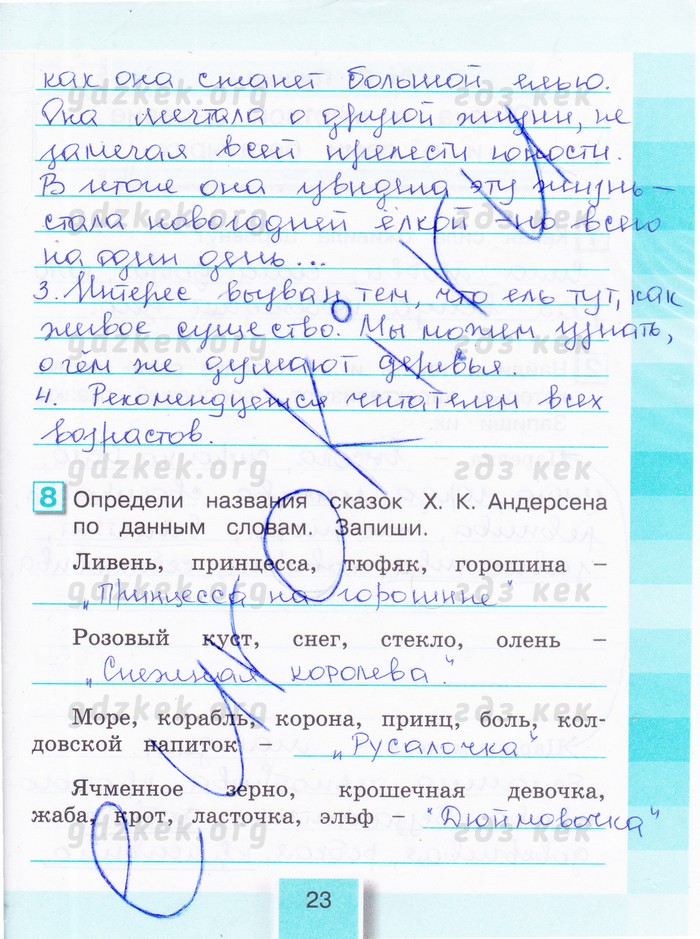 как она станет большой елью.
Она мечтала о другой жизни, не
замечая всей прелести юности.
В итоге она увидела эту жизнь –
стала новогодней ёлкой но всего
на один день...
3. Интерес вызван тем, что ель тут, как
живое существо. Мы можем узнать,
о чём же думают деревья.
4. Рекомендуется читателем всех
возрастов.
8 Определи названия сказок Х. К. Андерсена
по данным словам. Запиши.
Ливень, принцесса, тюфяк, горошина –
„Принцесса на горошине"
Розовый куст, снег, стекло, олень –
„Снежная королева."
Море, корабль, корона, принц, боль, кол-
довской напиток – „Русалочка"
Ячменное зерно, крошечная девочка,
жаба, крот, ласточка, эльф – "Дюймовочка"
23
gdzkek.org
гдз кек